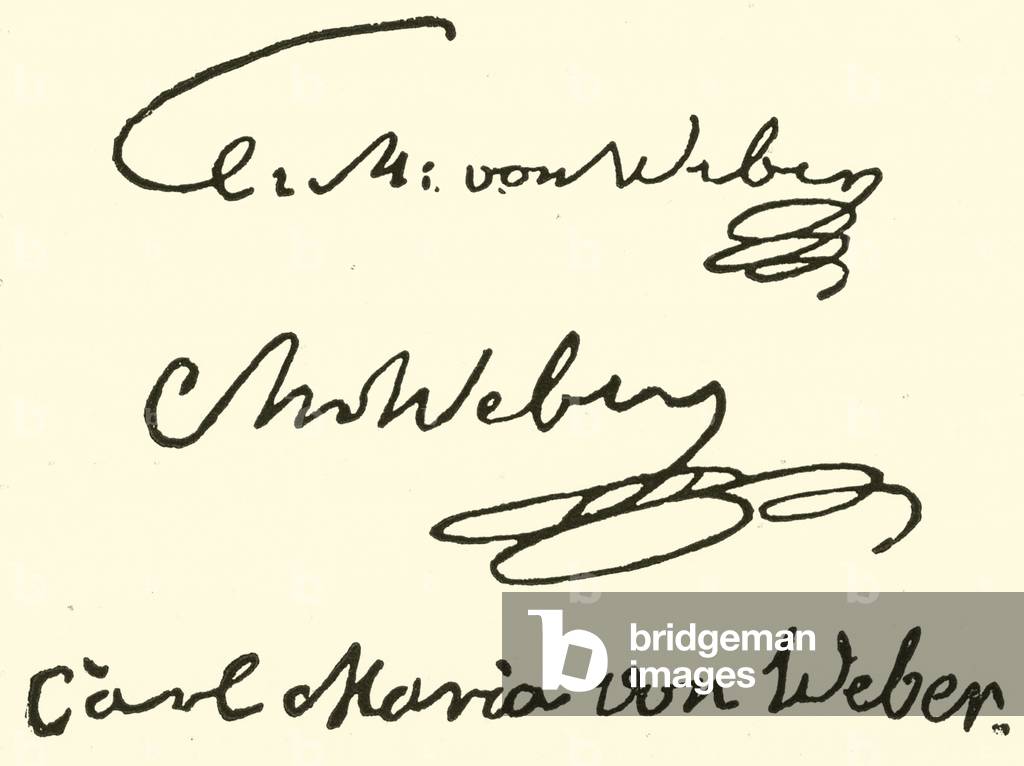 C. M. von Weber
CMvWeber
Carl Maria von Weber.
bridgeman
images